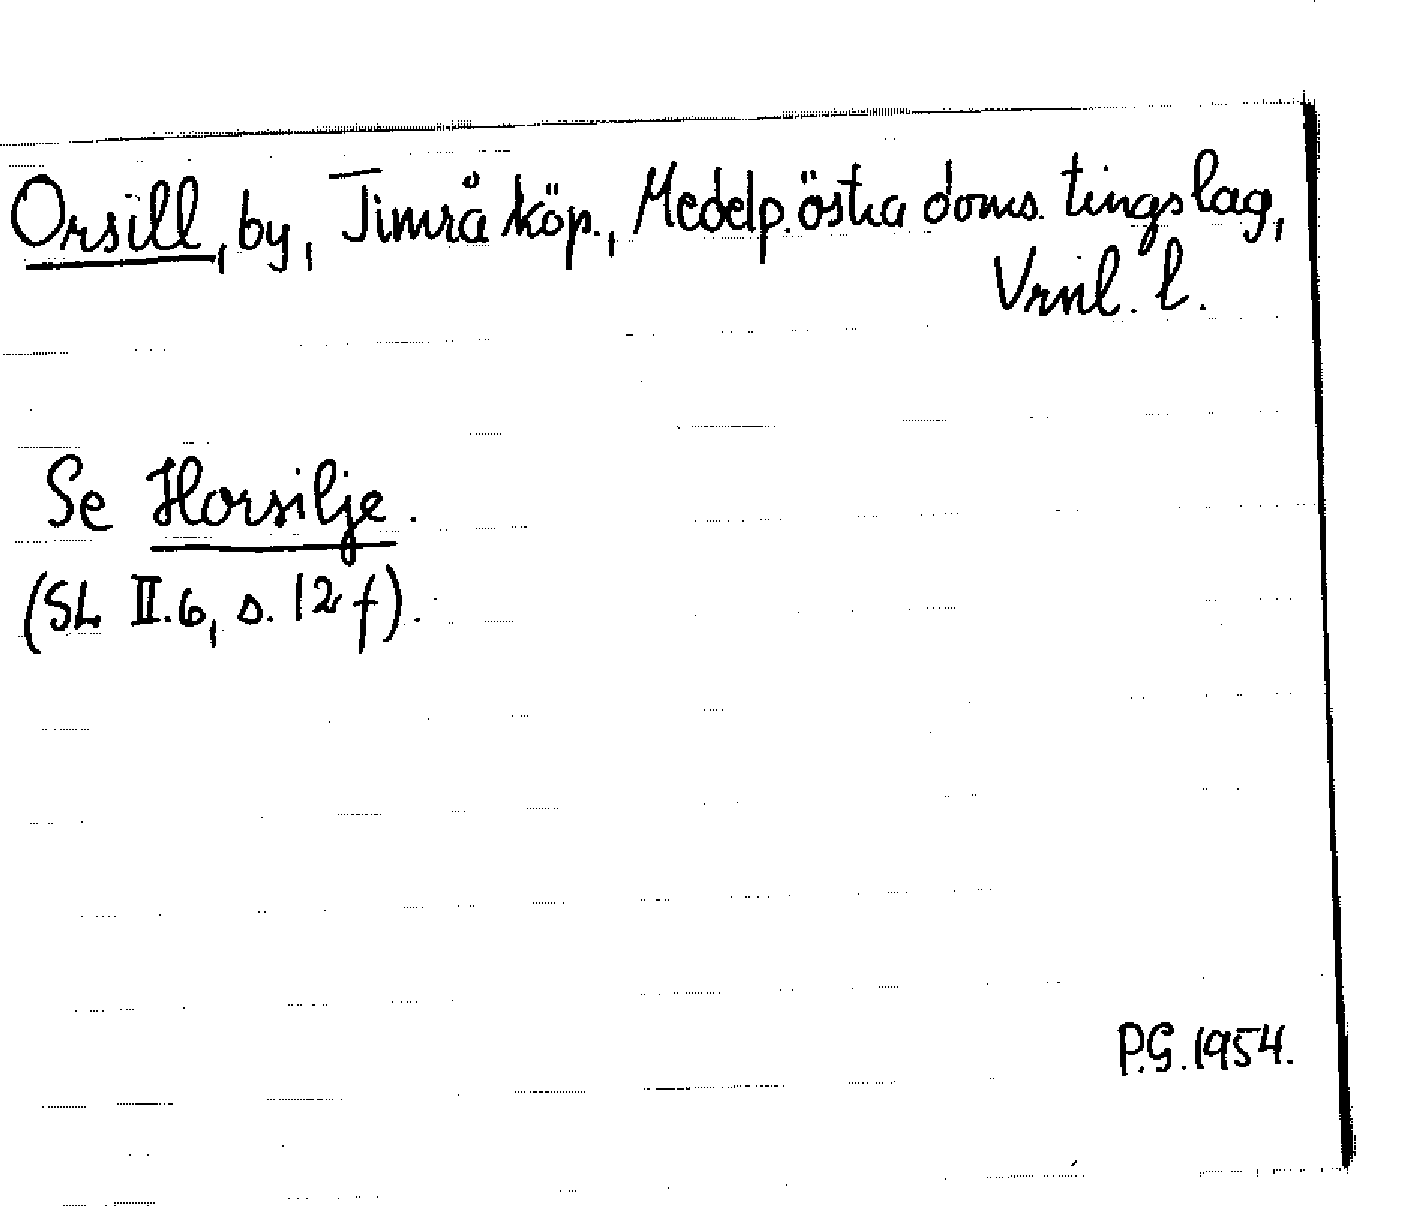 Orsill, by, Timrå köp., Medelp. östra doms. tingslag,
Vrnl. l.
Se Horsilje.
(SL II.6, s. 12 f).
P.G. 1954.